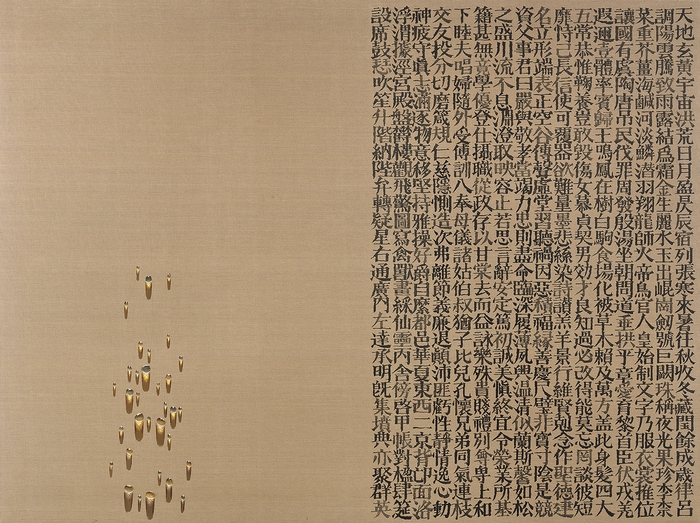 天地玄黃宇宙洪荒日月盈昃辰宿列張寒來暑往秋收冬藏閏餘成歲律呂
調陽雲騰致雨露結爲霜金生麗水玉出崑岡劒號巨闕珠稱夜光果珍李柰
菜重芥薑海鹹河淡鱗潛羽翔龍師火帝鳥官人皇始制文字乃服衣裳推位
讓國有虞陶唐吊民伐罪周發殷湯坐朝問道垂拱平章愛育黎首臣伏戎羌
遐邇壹體率賓歸王鳴鳳在樹白駒食場化被草木賴及萬方蓋此身髮四大
五常恭惟鞠養豈敢毀傷女慕貞烈男効才良知過必改得能莫忘罔談彼短
靡恃己長信使可覆器欲難量墨悲絲染詩讚羔羊景行維賢剋念作聖德建
名立形端表正空谷傳聲虛堂習聽禍因惡積福緣善慶尺璧非寶寸陰是競
資父事君曰嚴與敬孝當竭力忠則盡命臨深履薄夙興溫凊似蘭斯馨如松
之盛川流不息淵澄取映容止若思言辭安定篤初誠美愼終宜令榮業所基
籍甚無竟學優登仕攝職從政存以甘棠去而益詠樂殊貴賤禮別尊卑上和
下睦夫唱婦隨外受傅訓入奉母儀諸姑伯叔猶子比兒孔懷兄弟同氣連枝
交友投分切磨箴規仁慈隱惻造次弗離節義廉退顚沛匪虧性靜情逸心動
神疲守眞志滿逐物意移堅持雅操好爵自縻都邑華夏東西二京背邙面洛
浮渭據涇宮殿盤鬱樓觀飛驚圖寫禽獸畫綵仙靈丙舍傍啓甲帳對楹肆筵
設席鼓瑟吹笙升階納陛弁轉疑星右通廣內左達承明旣集墳典亦聚群英